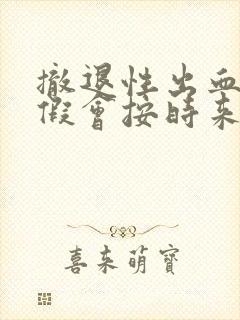 撤退性出血
假會按時來
喜来萌寶